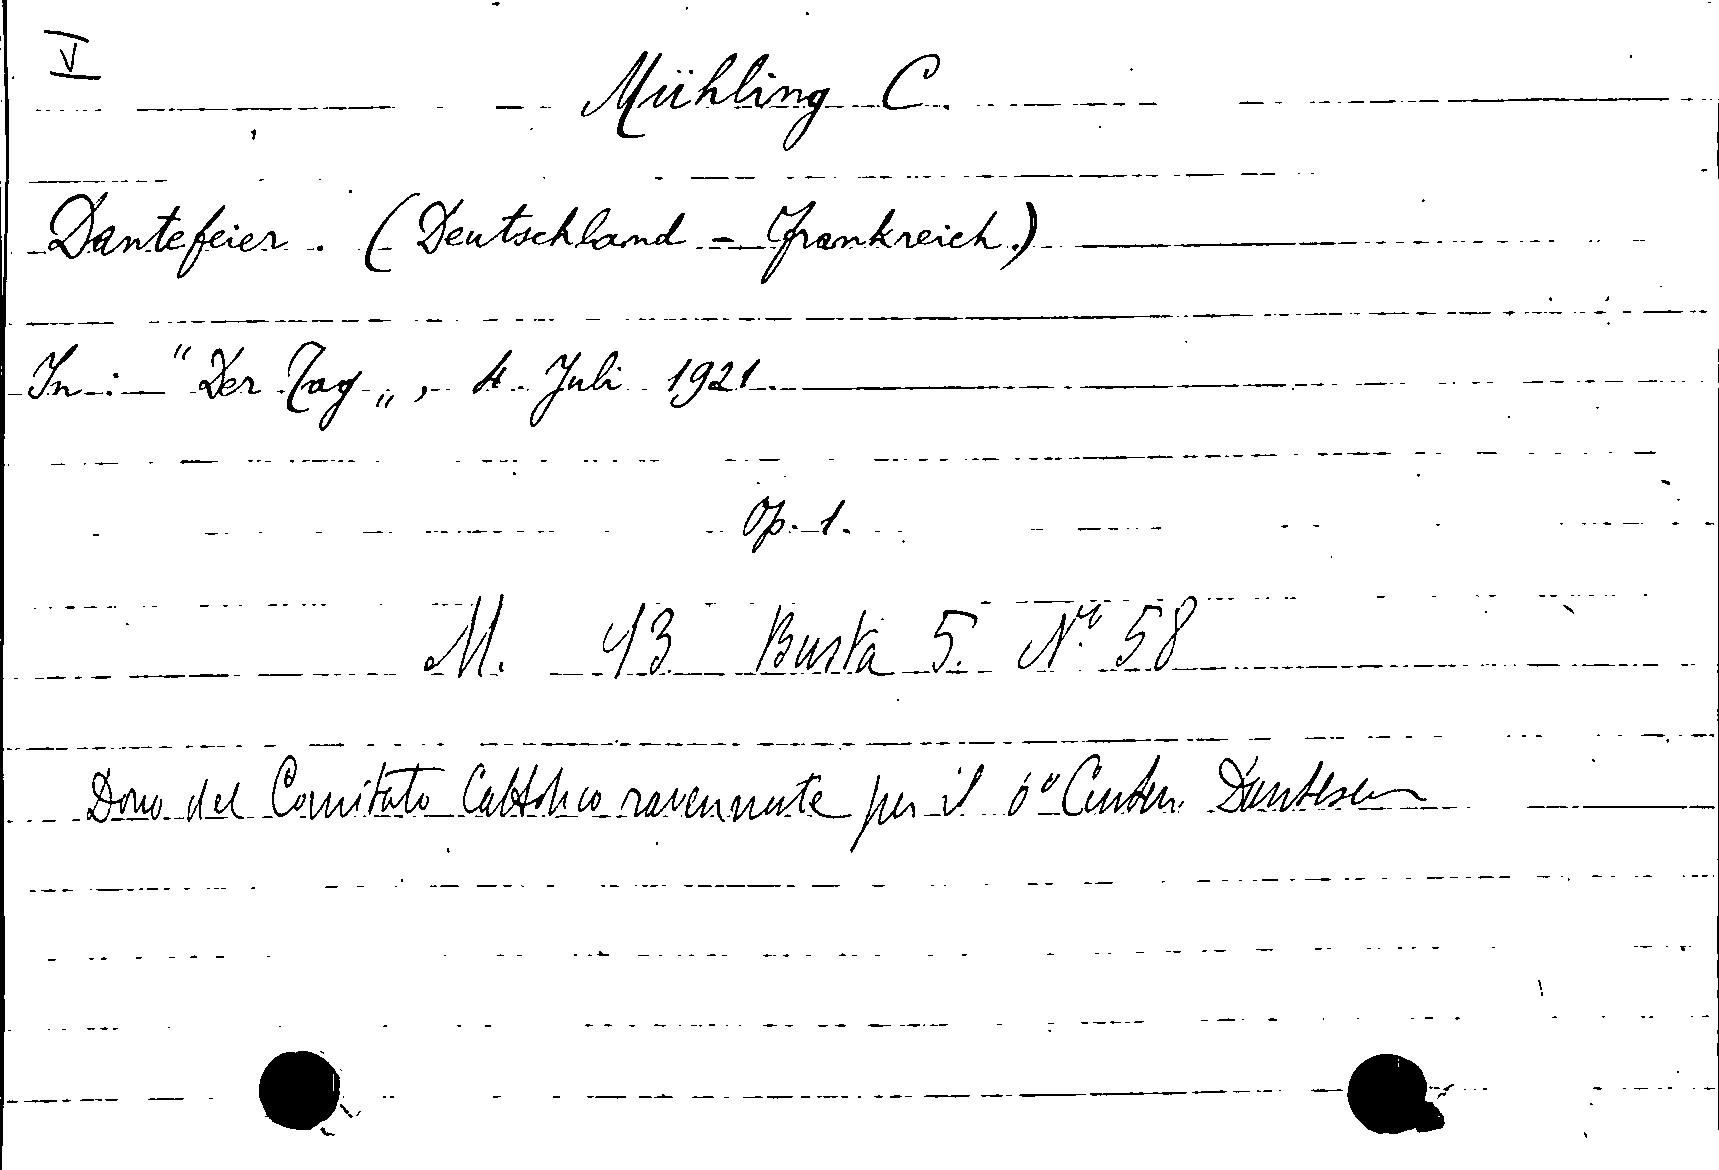 V
Mühling C.
Dantefeier. (Deutschland - Frankreich.)
In: "Der Tag„, 4. Juli 1921.
Op. 1.
M. 43 Busta 5. N.º 58
Dono del Comitato Cattolico ravennate per il 6º Centen. Dantesco